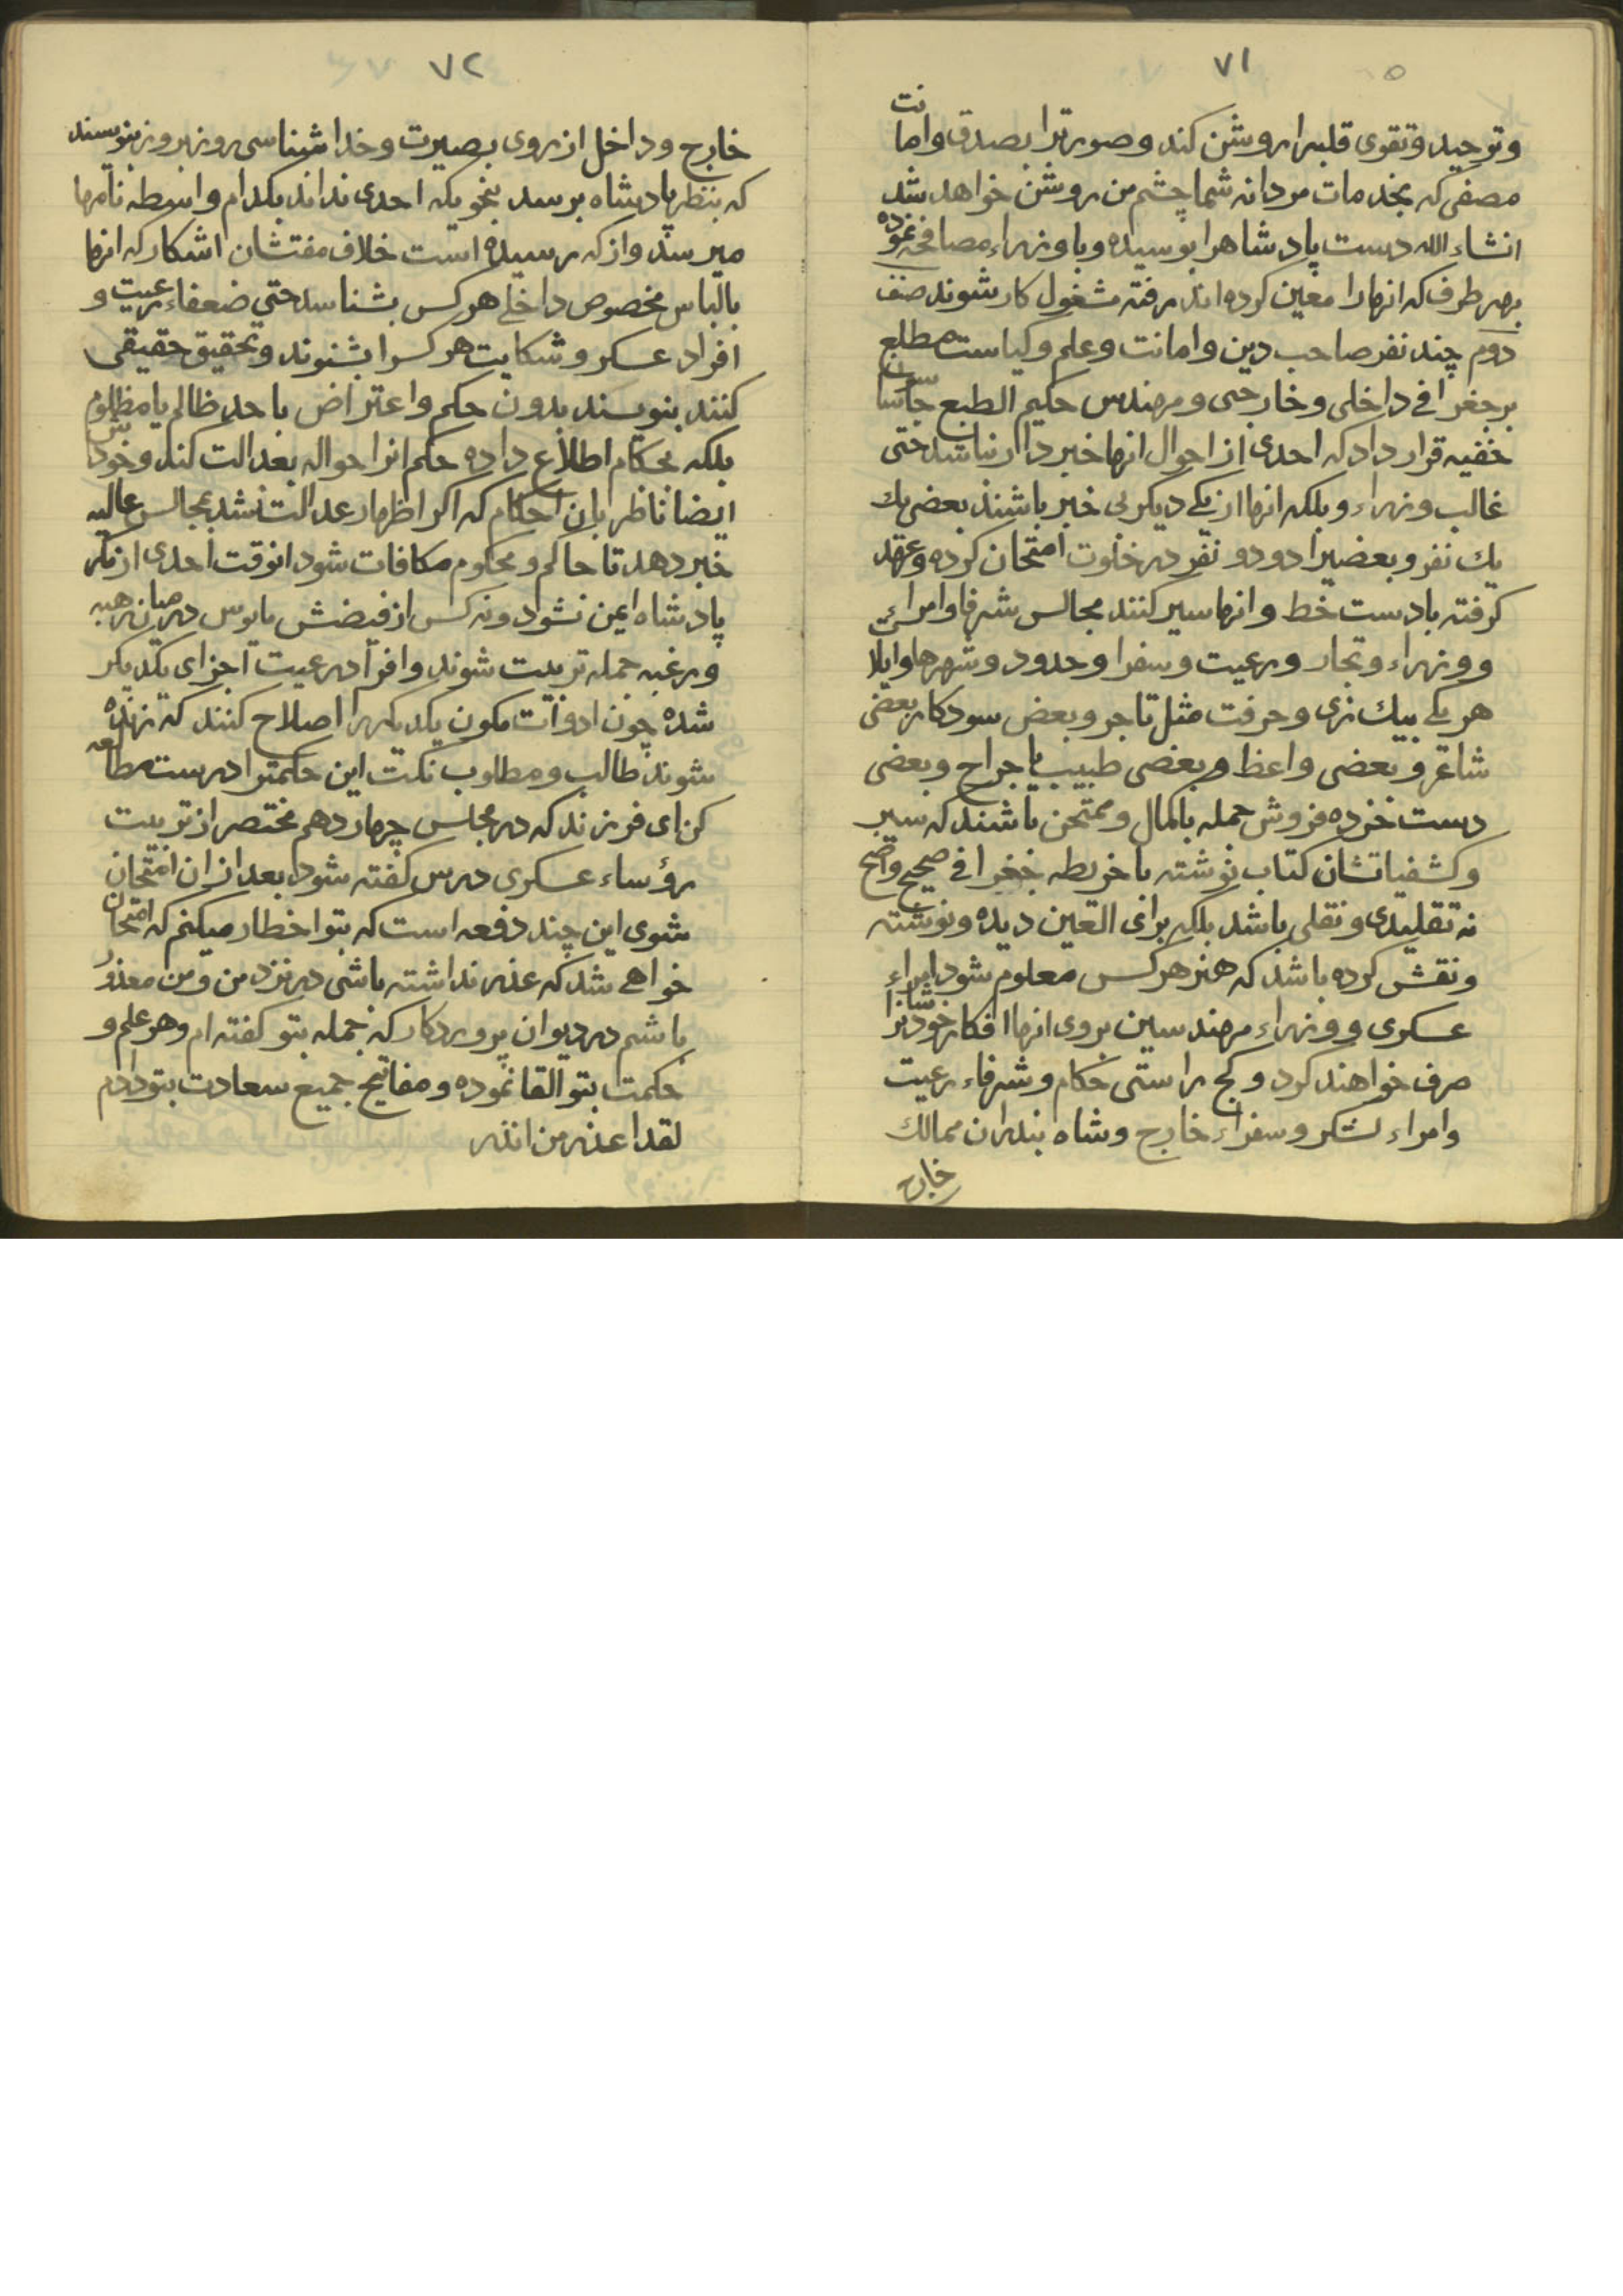 ٧١
وتوحید وتقوی قلبرا روشن کند وصورترا بصدق وامانت
مصفی که بخدمات مردانه شما چشم من روشن خواهد شد
انشاء الله دست پادشاهرا بوسیده وبا وزراء مصافحه نموده
بهر طرف که انهارا معین کرده اند رفته مشغول کار شوند صنف
دوم چند نفر صاحب دین وامانت وعلم وکیاست مطلع
بر جغرافی داخلی وخارجی ومهندس حکیم الطبع جاسوسان
خفیه قرار داد که احدی از احوال انها خبردار نباشد حتی
غالب وزراء وبلکه انها از یکی دیکر بی خبر باشند بعضی یك
یك نفر وبعضیرا دو دو نفر در خلوت امتحان کرده وعهد
کرفته بادست خط وانها سیر کنند مجالس شرفا وامرای
ووزراء وتجار ورعیت وسفرا وحدود وشهرها وایلا
هر یکی بیك زی وحرفت مثل تاجر وبعض سودکار بعضی
شاعر وبعضی واعظ وبعضی طبیب یا جراح وبعضی
دست خزده فروش جمله باکمال وممتحن باشند که سیر
وکشفیاتشان کتاب نوشته با خریطه جغرافی صحیح واضح
نه تقلیدی ونقلی باشد بلکه برای العین دیده ونوشته
ونقش کرده باشد که هنر هر کس معلوم شود امراء
عسکری ووزراء مهندسین بروی انها افکار خودشانرا
صرف خواهند کرد وکج راستی حکام وشرفاء رعیت
وامراء لشکر وسفراء خارج وشاه بندران ممالك
خارج
٧٢
خارج وداخل از روی بصیرت وخدا شناسی روز بروز بنویسند
که بنظر پادشاه برسد بنحویکه احدی نداند بکدام واسطه نامها
میرسند واز که رسیده است خلاف مفتشان اشکار که انها
بالباس مخصوص داخلی هر کس بشناسد حتی ضعفاء رعیت و
افراد عسکر وشکایت هر کسرا بشنوند وتحقیق حقیقی
کنند بنویسند بدون حکم واعتراض باحد ظالم یا مظلوم
بلکه بحکام اطلاع داده حکم انرا حواله بعدالت کند وخودش
ایضا ناظر بان احکام که اکر اظهار عدالت نشد بمجالس عالیه
خبر دهد تا حاکم ومحکوم مکافات شود انوقت احدی از مکر
پادشاه ایمن نشود ونه کس از فیضش مایوس در میان رهبه
ورغبه جمله تربیت شوند وافراد رعیت اجزای یکدیکر
شده چون ادوات مکون یکدیکررا اصلاح کنند که زنده
شوند طالب ومطلوب نکت این حکمترا درست مطالعه
کن ای فرزند که در مجلس چهاردهم مختصر از تربیت
رؤساء عسکری درس کفته شود بعد از ان امتحان
شوی این چند دفعه است که بتو اخطار میکنم که امتحان
خواهی شد که عذر نداشته باشی در نزد من ومن معذور
باشم در دیوان پروردکار که جمله بتو کفته ام وهر علم و
حکمت بتو القا نموده ومفاتیح جمیع سعادت بتو دادم
لقد اعذر من انذر